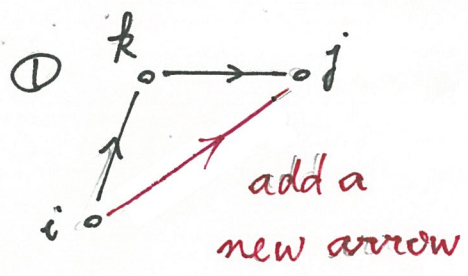 ①
k
j
i
add a
new arrow